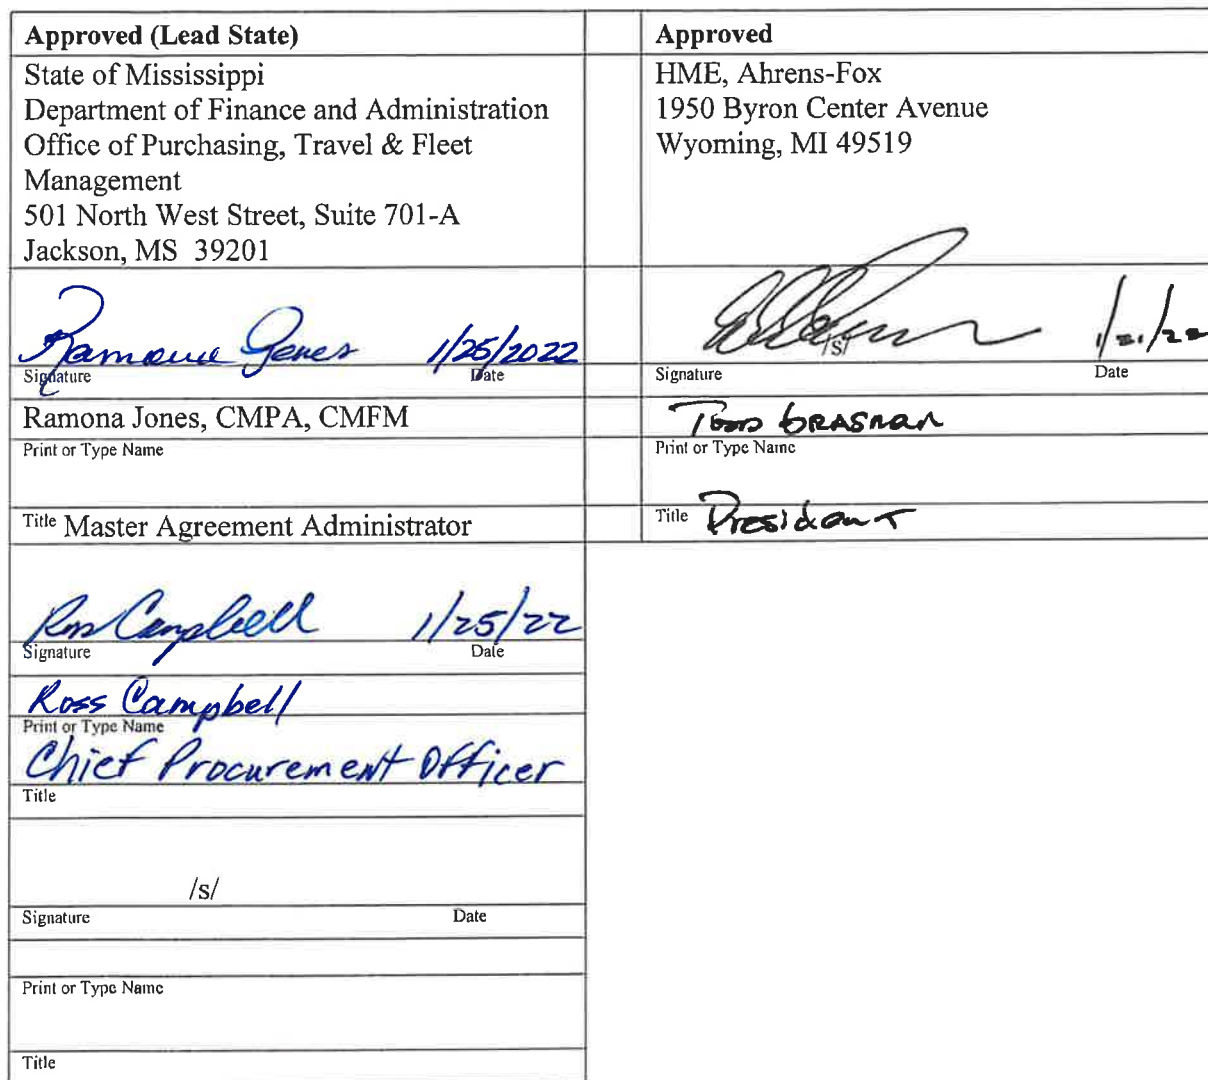 Approved (Lead State)
State of Mississippi
Department of Finance and Administration
Office of Purchasing, Travel & Fleet
Management
501 North West Street, Suite 701-A
Jackson, MS 39201
Ramona Jones 1/25/2022
Signature Date
Ramona Jones, CMPA, CMFM
Print or Type Name
Title Master Agreement Administrator
Ross Campbell 1/25/22
Signature Date
Ross Campbell
Print or Type Name
Chief Procurement Officer
Title
/s/
Signature Date
Print or Type Name
Title
Approved
HME, Ahrens-Fox
1950 Byron Center Avenue
Wyoming, MI 49519
/s/ 1/21/22
Signature Date
Todd
Print or Type Name
Title President